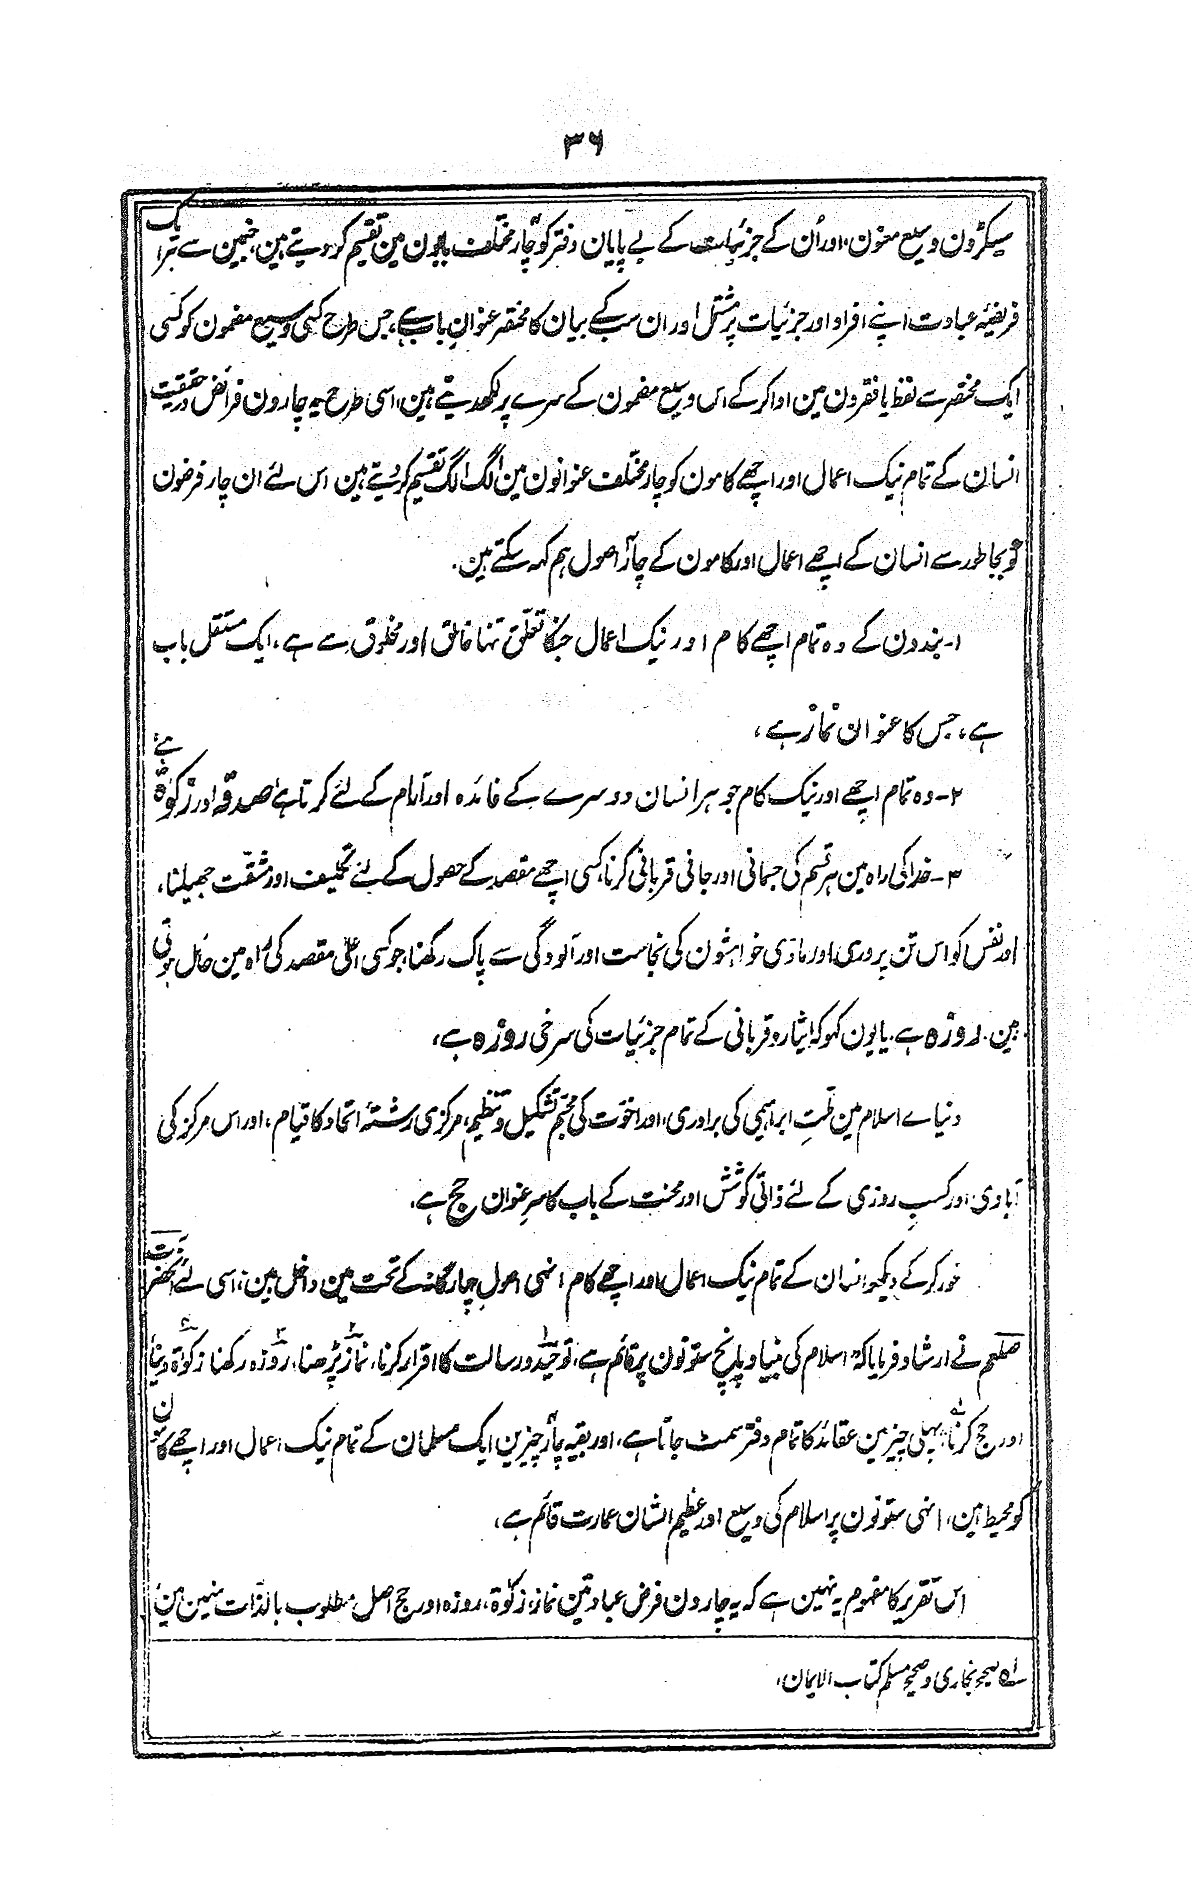 ۳۶
سیکڑون وسیع معنون، اور اُن کے جزئیات کے بے پایان دفتر کو چار مختلف بابون مین تقسیم کر دیتے ہین، جنمین سے ہر ایک
فریضۂ عبادت اپنے افراد اور جزئیات پر مشتمل اور ان سب کے بیان کا مختصر عنوانِ باب ہے، جس طرح کسی وسیع مضمون کو کسی
ایک مختصر سے لفظ یا فقرون مین ادا کر کے اس وسیع مضمون کے سرے پر لکھدیتے ہین، اسی طرح یہ چارون فرائض درحقیقت
انسان کے تمام نیک اعمال اور اچھے کامون کو چار مختلف عنوانون مین الگ الگ تقسیم کر دیتے ہین اس لئے ان چار فرضون
کو بجا طور سے انسان کے اچھے اعمال اور کامون کے چار اصول ہم کہہ سکتے ہین.
۱- بندون کے وہ تمام اچھے کام اور نیک اعمال جنکا تعلق تنہا خالق اور مخلوق سے ہے، ایک مستقل باب
ہے، جس کا عنوان نماز ہے،
۲- وہ تمام اچھے اور نیک کام جو ہر انسان دوسرے کے فائدہ اور آرام کے لئے کرتا ہے صدقہ اور زکوٰۃ ہے
۳- خدا کی راہ مین ہر قسم کی جسمانی اور جانی قربانی کرنا، کسی اچھے مقصد کے حصول کے لئے تکلیف اور مشقت جھیلنا،
اور نفس کو اس تن پروری اور مادی خواہشون کی نجاست اور آلودگی سے پاک رکھنا، جو کسی اعلیٰ مقصد کی راہ مین حائل ہوتی
ہین. روزہ ہے. یا یون کہو کہ ایثار و قربانی کے تمام جزئیات کی سرخی روزہ ہے،
دنیاے اسلام مین ملّتِ ابراہیمی کی برادری، اور اخوت کی مجسم تشکیل و تنظیم، مرکزی رشتۂ اتحاد کا قیام، اور اس مرکز کی
آبادی، اور کسبِ روزی کے لئے ذاتی کوشش اور محنت کے باب کا سرِعنوان حج ہے.
غور کر کے دیکھو، انسان کے تمام نیک اعمال اور اچھے کام انہی اصولِ چارگانہ کے تحت مین داخل ہین، اسی لئے آنحضرت
صلعم نے ارشاد فرمایا کہ "اسلام کی بنیاد پانچ ستونون پر قائم ہے، توحید و رسالت کا اقرار کرنا، نماز پڑھنا، روزہ رکھنا زکوٰۃ دینا
اور حج کرنا"، پہلی چیز مین عقائد کا تمام دفتر سمٹ جاتا ہے، اور بقیہ چار چیزین ایک مسلمان کے تمام نیک اعمال اور اچھے کامون
کو محیط ہین، انہی ستونون پر اسلام کی وسیع اور عظیم الشان عمارت قائم ہے،
اس تقریر کا مفہوم یہ نہین ہے کہ یہ چارون فرض عبادتین نماز، زکوٰۃ، روزہ اور حج اصل مطلوب بالذات نہین ہین،
لہ صحیح بخاری و صحیح مسلم کتاب الایمان،